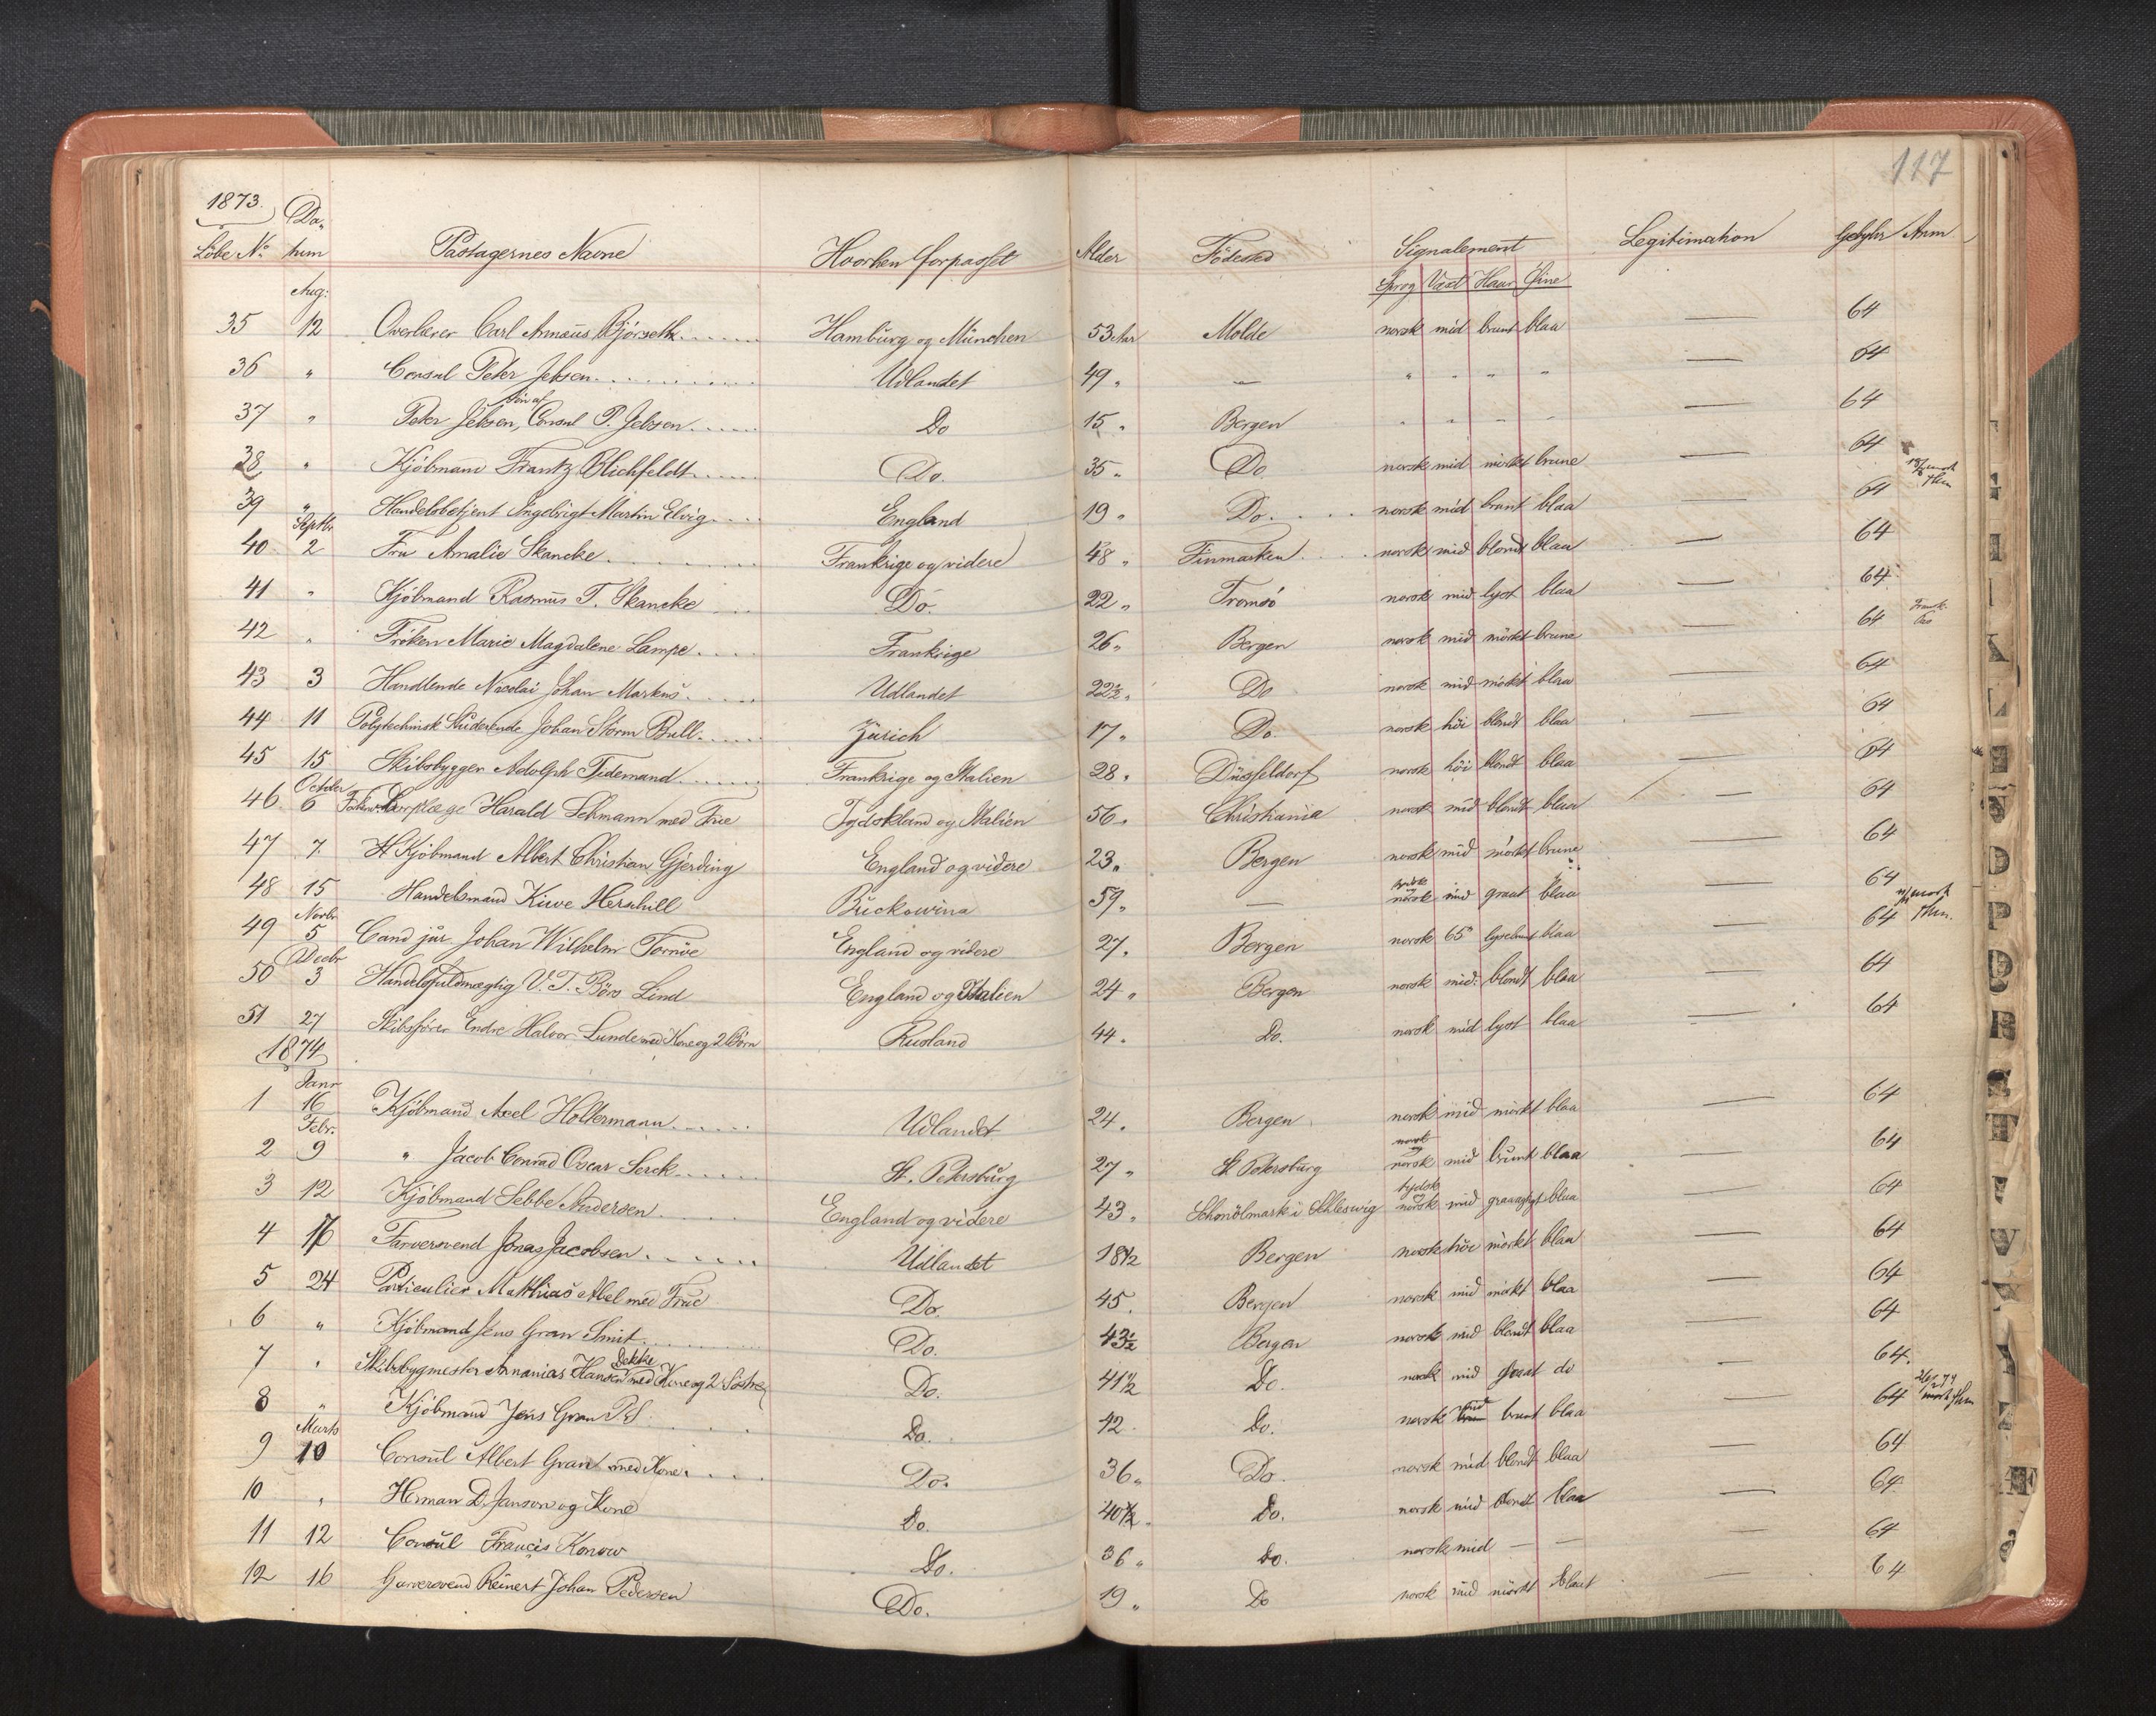 117
1873. Da-
Löbe No. tum Passagernes Navne Hvorhen forpasset Alder Födested Signalement Legitimation Gebyhr Anm
Sprog Vext Haar Öine
Aug:
35 12 Overlærer Carl Annæus Bjørseth Hamburg og München 53 Aar Molde norsk mid brunt blaa — 64
36 " Consul Peter Jebsen Udlandet 49 " — " " " " — 64
Søn af
37 " Peter Jebsen, Consul P. Jebsen Do 15 " Bergen " " " " — 64
38 " Kjöbmand Frantz Blichfeldt Do. 35 " Do. norsk mid mörkt brune — 64
39 " Handelsbetjent Ingebrigt Martin Elvig England 19 " Do. norsk mid brunt blaa — 64
Septbr
40 2 Fru Amalie Skancke Frankrige og videre 48 " Finmarken norsk mid blondt blaa — 64
41 " Kjöbmand Rasmus T. Skancke Do. 22 " Tromsö norsk mid lyst blaa — 64
42 " Fröken Marie Magdalene Lampe Frankrige 26 " Bergen norsk mid mörkt brune — 64
43 3 Handlende Nicolai Johan Markus Udlandet 22½ " Do norsk mid mörkt blaa — 64
44 11 Polytechnisk Studerende Johan Storm Bull Zürich 17 " Do. norsk höi blondt blaa — 64
45 15 Skibsbygger Adolph Tidemand Frankrige og Italien 28 " Düsseldorf norsk höi blondt blaa — 64
Octbr
46 6 Korpslæge Harald Lehmann med Frue Tydskland og Italien 56 " Christiania norsk mid blondt blaa — 64
47 7 Kjöbmand Albert Christian Gjerding England og videre 23 " Bergen norsk mid mörkt brune — 64
tydsk og
48 15 Handelsmand Kiwe Herschill Buckowina 59 " — norsk mid graat blaa — 64
Novbr
49 5 Cand jur. Johan Wilhelm Tornöe England og videre 27 " Bergen norsk 65" lysebrunt blaa — 64
Decbr
50 3 Handelsfuldmægtig V. T. Börs Lind England og Italien 24 " Bergen norsk mid. blondt blaa — 64
51 27 Skibsförer Endre Halvor Lunde med Kone og 2 Börn Rusland 44 " Do. norsk mid lyst blaa — 64
1874
Janr
1 16 Kjöbmand Axel Holtermann Udlandet 24 " Bergen norsk mid mörkt blaa — 64
Febr.
2 9 " Jacob Conrad Oscar Serck St. Petersburg 27 " St Petersburg norsk mid brunt blaa — 64
tydsk og
3 12 Kjöbmand Sebbe Andersen England og videre 43 " Schonölmark i Schleswig norsk mid graasprgt blaa — 64
4 16 Farversvend Jonas Jacobsen Udlandet 18½ Bergen norsk höi mörkt blaa — 64
5 24 Particulier Mathias Abel med Frue Do. 45 " Bergen norsk mid mörkt blaa — 64
6 " Kjöbmand Jens Gran Smit Do. 43½ Bergen norsk mid blondt blaa — 64
Dekke
7 " Skibsbygmester Annanias Hansen med Kone og 2 Söstre Do. 41½ Do. norsk mid graat do — 64.
8 " Kjöbmand Jens Gran P.S. Do. 42 Do. norsk mid brunt blaa 64
Marts
9 10 Consul Albert Gran med Kone Do. 36 " Do. norsk mid blondt blaa — 64
10 " Herman D. Janson og Kone Do. 40½ " Do. norsk mid blondt blaa — 64
11 12 Consul Francis Konow Do. 36 " Do. norsk mid — — — 64
12 16 Garversvend Reinert Johan Pedersen Do. 19 " Do norsk mid mörkt blaat — 64